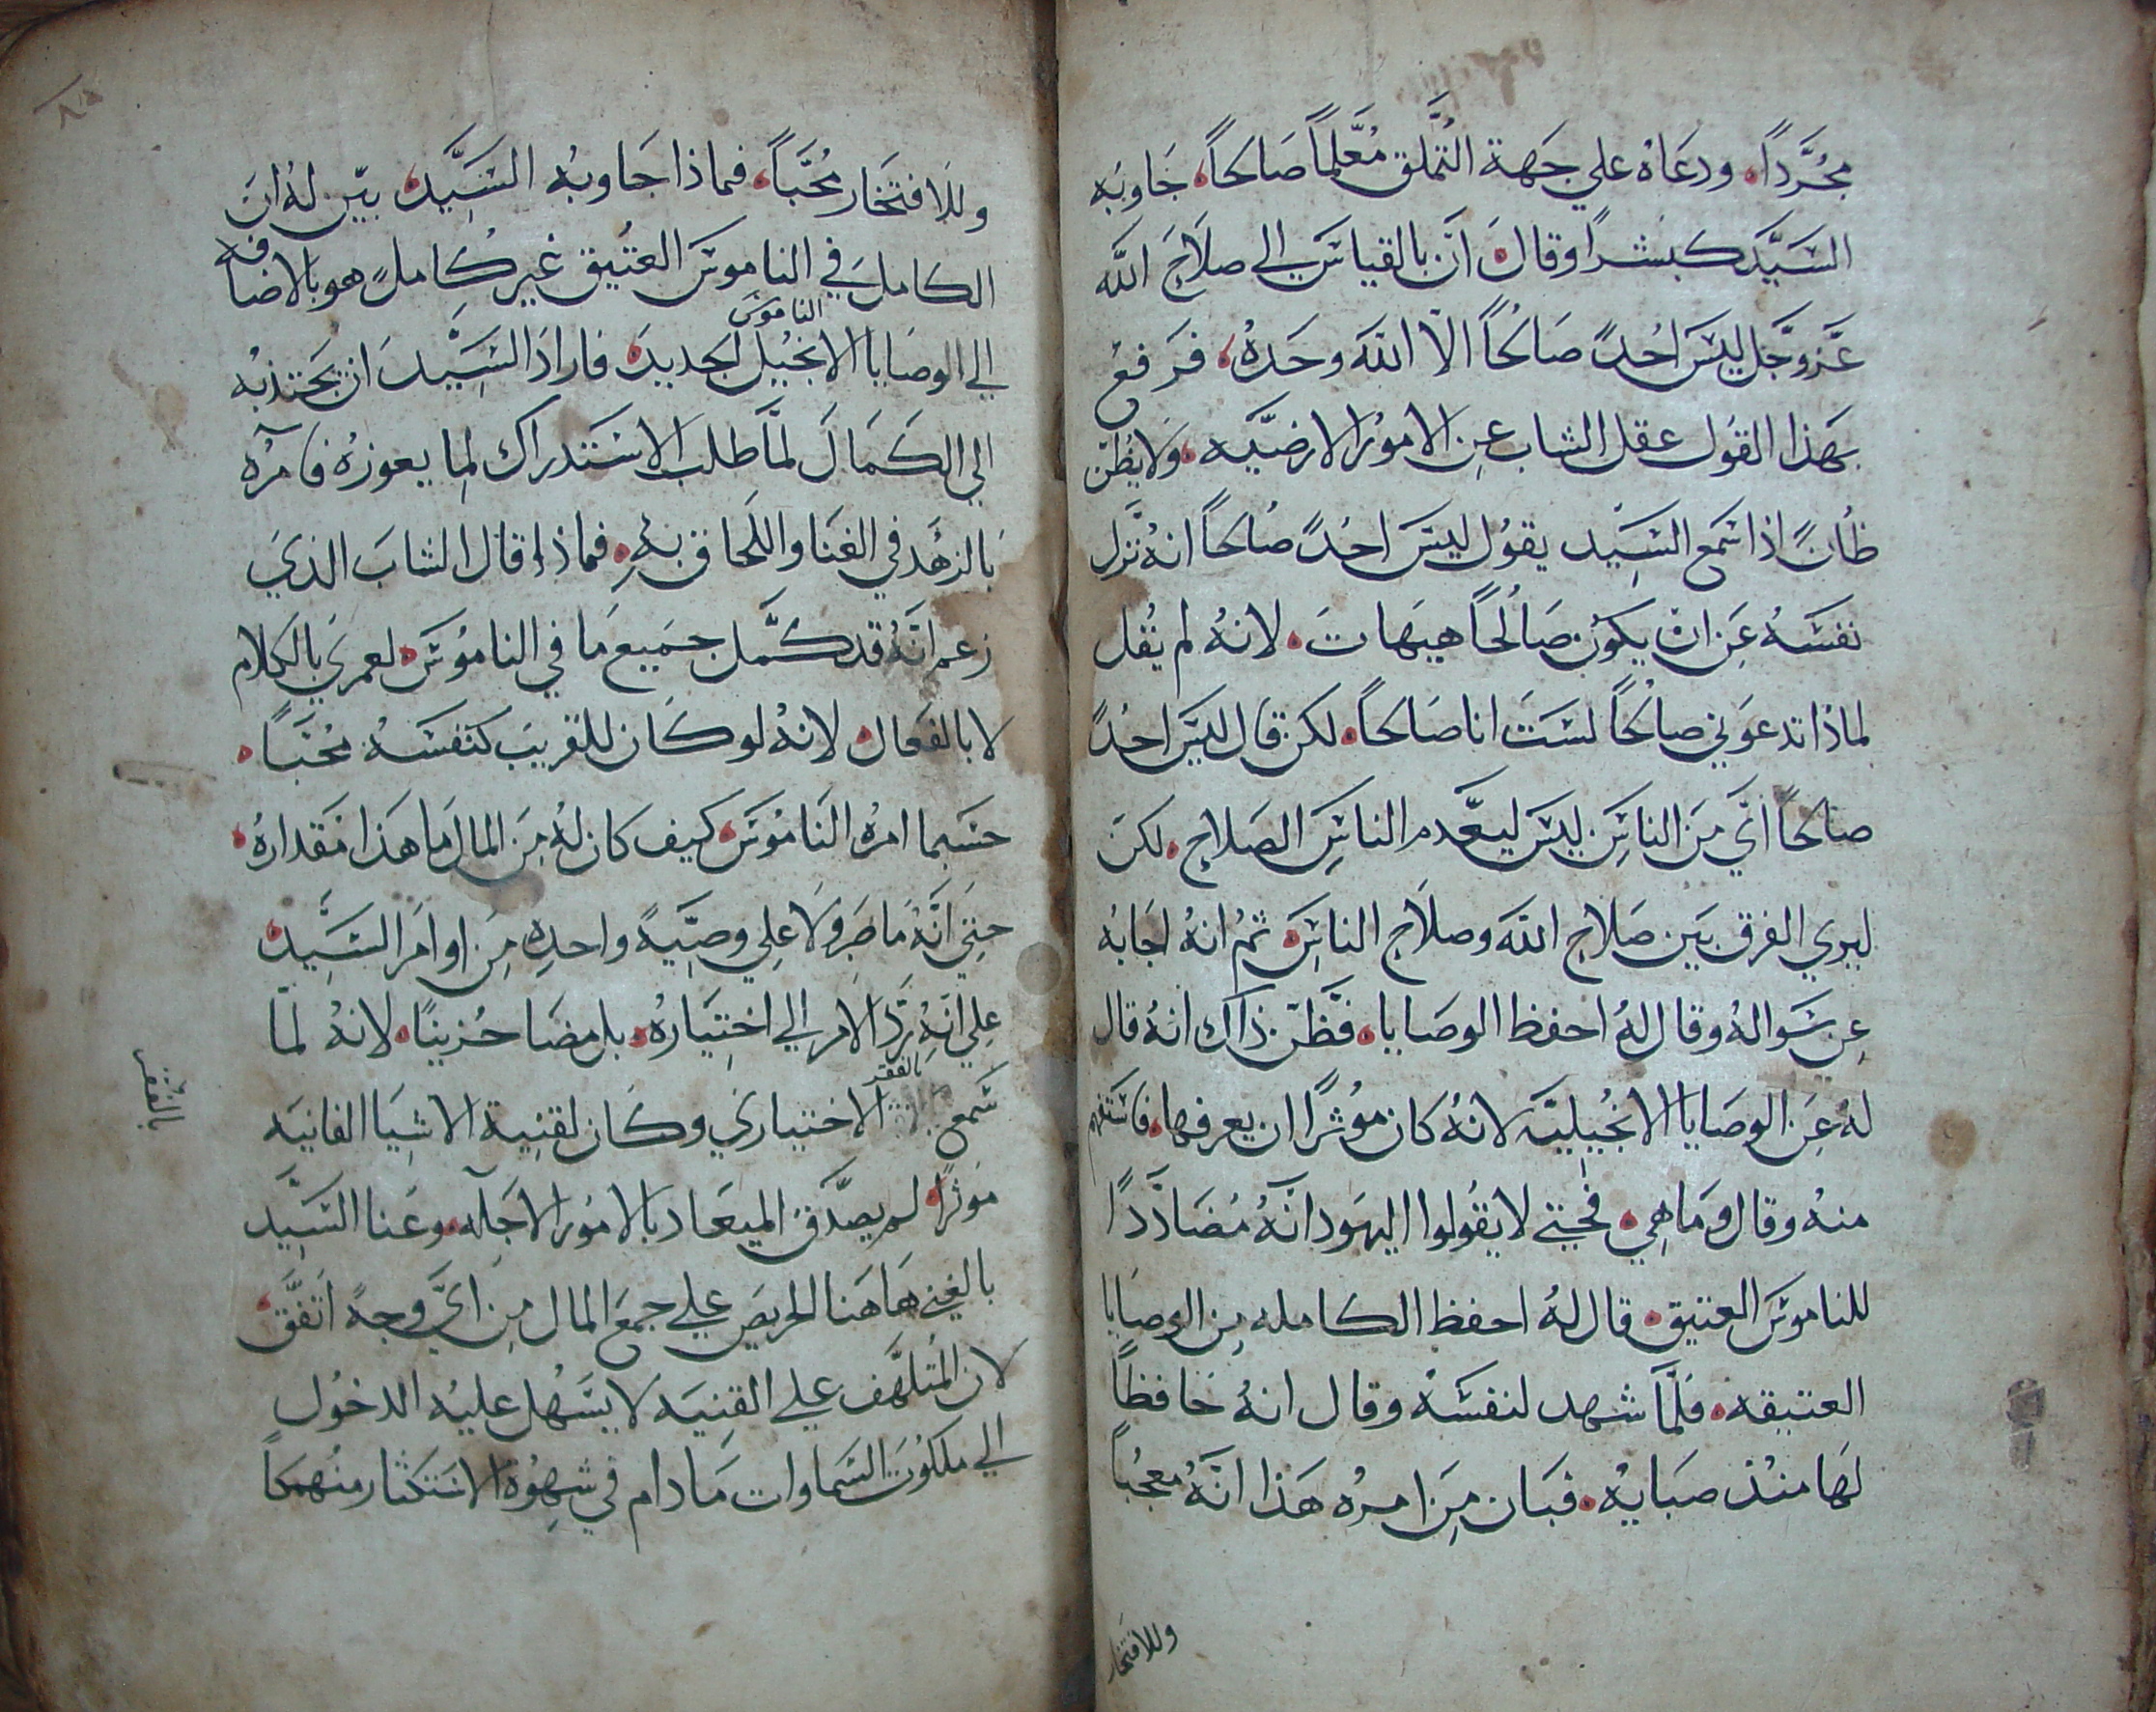 مجرَّداً، ودعاه علي جهة التملّق مُعلّماً صَالحاً، جَاوبَه
السَيَّد كبشراً وقالَ انَّ بالقياسَ الى صلَاحَ اللَّه
عَّزوجَّل ليسَ احُدً صَالحُاً الّا اللَّه وحَدهُ، فرَفعُ
بهَذا القوُل عقل الشاب عِن الامورُ الارضيَّه، ولَا يظُنّ
ظُانً اذا سَمَع السَيِّد يقوُل ليسَ احُدً صُالحاً انهُ نَزل
نفسَهُ عَن انْ يكوُن صَالُحاً هيهَات، لانهُ لم يقُل
لماذا تدعوَني صالحُاً لسَتَ انا صَالحاً، لكن قال ليسَ احُدً
صالحاً ايَّ مِنَ الناسَِ ليسَ ليعَّدم الناسَِ الصَلاح، لكنَ
ليري الفرق بَين صَلاح اللَّه وصلَاح الناسَِ، ثمُ انهُ اجَابهُ
عِن سَوالهُ وقال لهُ احفظ الوصَايا، فظَّنّ ذاك انهُ قال
لهُ عَن الوصَايا الانجُيليَّه لانهُ كان موُثرًا ان يعرفها، فاسَتفهم
منهُ وقال ومَا هِي، فحتي لا يقُولوا اليهوَد انَّهُ مُضَادّدًا
للناموسَ العتيق، قال لهُ احفظ الكامله مِن الوصَايا
العتيقه، فلَّما شهد لنفسَهْ وقال انهُ حَافظاً
لهَا منْذ صبَايهُ، فبَان مِنَ امرهُ هَذا انَّهُ معجبُاً
وللافتخار
وللافتخار مُحَبّاً، فماذا جَاوبهُ السَيَّد، بيّن لهُ انَ
الكاملَ في الناموسَ العتُيق غير كامِلً هو بالاضافه
الي الوصَايا الانجُيل الناموسَ الجديد، فارادَ السَيِّد انْ يجَتذبْه
الي الكَمَالَ لمَّا طلب الاسَتدراك لِما يعوزهُ فامَرُه
بَالزهُد في الغنَا واللَحاق بهِ، فماذا قال الشابَ الذيَ
زعم انَّهُ قد كمَّل جمَيعَ مَا في النامُوسَ، لعمريَ بَالكلام
لا بالفعَال، لانهُ لو كَان للقريبَ كنفسَهُ مُحَبّاً،
حسَبما امرهُ النَاموُسَ، كيف كان لهُ مِنَ المال مَا هَذا مَقدارهُ،
حتي انَّهُ مَا صَبر ولَا علي وصيَّةً واحدهِ مِنَ اوامَر السَيَّد،
علي انَهِ ردَّ الامر الي اختِيَارهُ، بل مضَا حُزينًا، لانهُ لمّا
سَمع بالفقر الاختياريَ وكَان لقنِية الاشيَا الفانيَه
موَثرًا، لم يصَدّقَ الميعَاد بالامُورَ الاجَله، وعَنا السَيِّد
بالغني هَاهَنا الحريصَ علي جمعَ المال مِن ايَّ وجهً اتَفَّقَ،
لان المُتلهَّف علي القِنيَه لا يسَهُل عليهُ الدخوُل
الي ملكوُت السَماوات مَادام في شهوُة الاسَتكثار منُهمَكاً
بالفقر